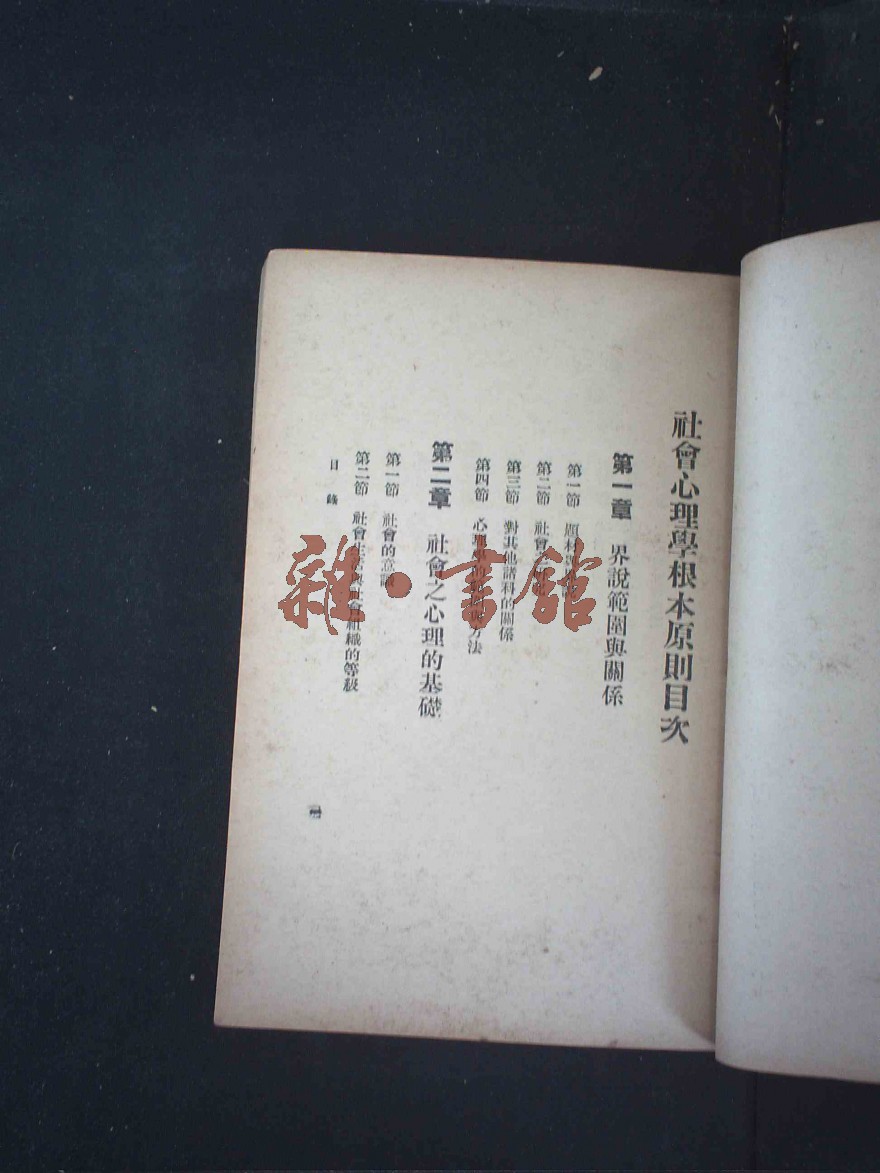 社會心理學根本原則目次
第一章 界說範圍與關係
第一節 題材
第二節 社會
第三節 對其他諸科的關係
第四節 心理學的 方法
第二章 社會之心理的基礎
第一節 社會的意識
第二節 社會生 與社會組織的等級
目錄
雜·書館